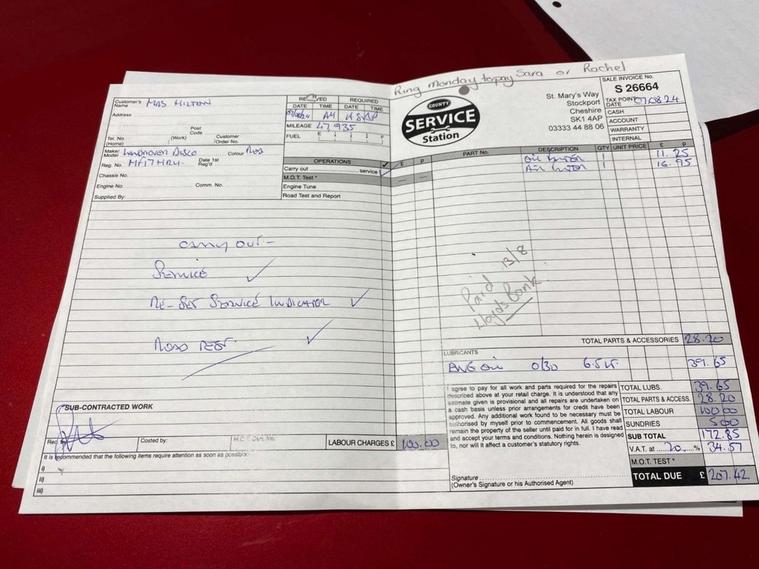 Ring Monday to pay Sara or Rachel
Customer's Name MRS HILTON
Address
Post Code
Tel. No. (Home) (Work) Customer Order No.
Make/Model LANDROVER DISCO Colour RED
Reg. No. Date 1st Reg'd
Chassis No.
Engine No. Comm. No.
Supplied By:
RECEIVED REQUIRED
DATE TIME DATE TIME
AM
MILEAGE 47935
FUEL E F
OPERATIONS ✓ £ P
Carry out service ✓
M.O.T. Test *
Engine Tune
Road Test and Report
carry out -
SERVICE ✓
RE-SET SERVICE INDICATOR ✓
ROAD TEST ✓
SUB-CONTRACTED WORK
Costed by:
LABOUR CHARGES £ 100.00
It is recommended that the following items require attention as soon as possible:
i)
ii)
iii)
COUNTY
SERVICE
Station
St. Mary's Way
Stockport
Cheshire
SK1 4AP
03333 44 88 06
SALE INVOICE No.
S 26664
TAX POINT DATE 07.08.24
CASH
ACCOUNT
WARRANTY
INTERNAL
PART No. DESCRIPTION QTY UNIT PRICE £ P
OIL FILTER 1 11.25
AIR FILTER 1 16.95
Paid 13/8
Lloyds Bank
TOTAL PARTS & ACCESSORIES 28.20
LUBRICANTS
ENG OIL 0/30 6.5 LT. 39.65
I agree to pay for all work and parts required for the repairs
described above at your retail charge. It is understood that any
estimate given is provisional and all repairs are undertaken on
a cash basis unless prior arrangements for credit have been
approved. Any additional work found to be necessary must be
authorised by myself prior to commencement. All goods shall
remain the property of the seller until paid for in full. I have read
and accept your terms and conditions. Nothing herein is designed
to, nor will it affect a customer's statutory rights.
Signature
(Owner's Signature or his Authorised Agent)
TOTAL LUBS. 39.65
TOTAL PARTS & ACCESS. 28.20
TOTAL LABOUR 100.00
SUNDRIES 5.00
SUB TOTAL 172.85
V.A.T. at 20 % 34.57
M.O.T. TEST *
TOTAL DUE £ 207.42